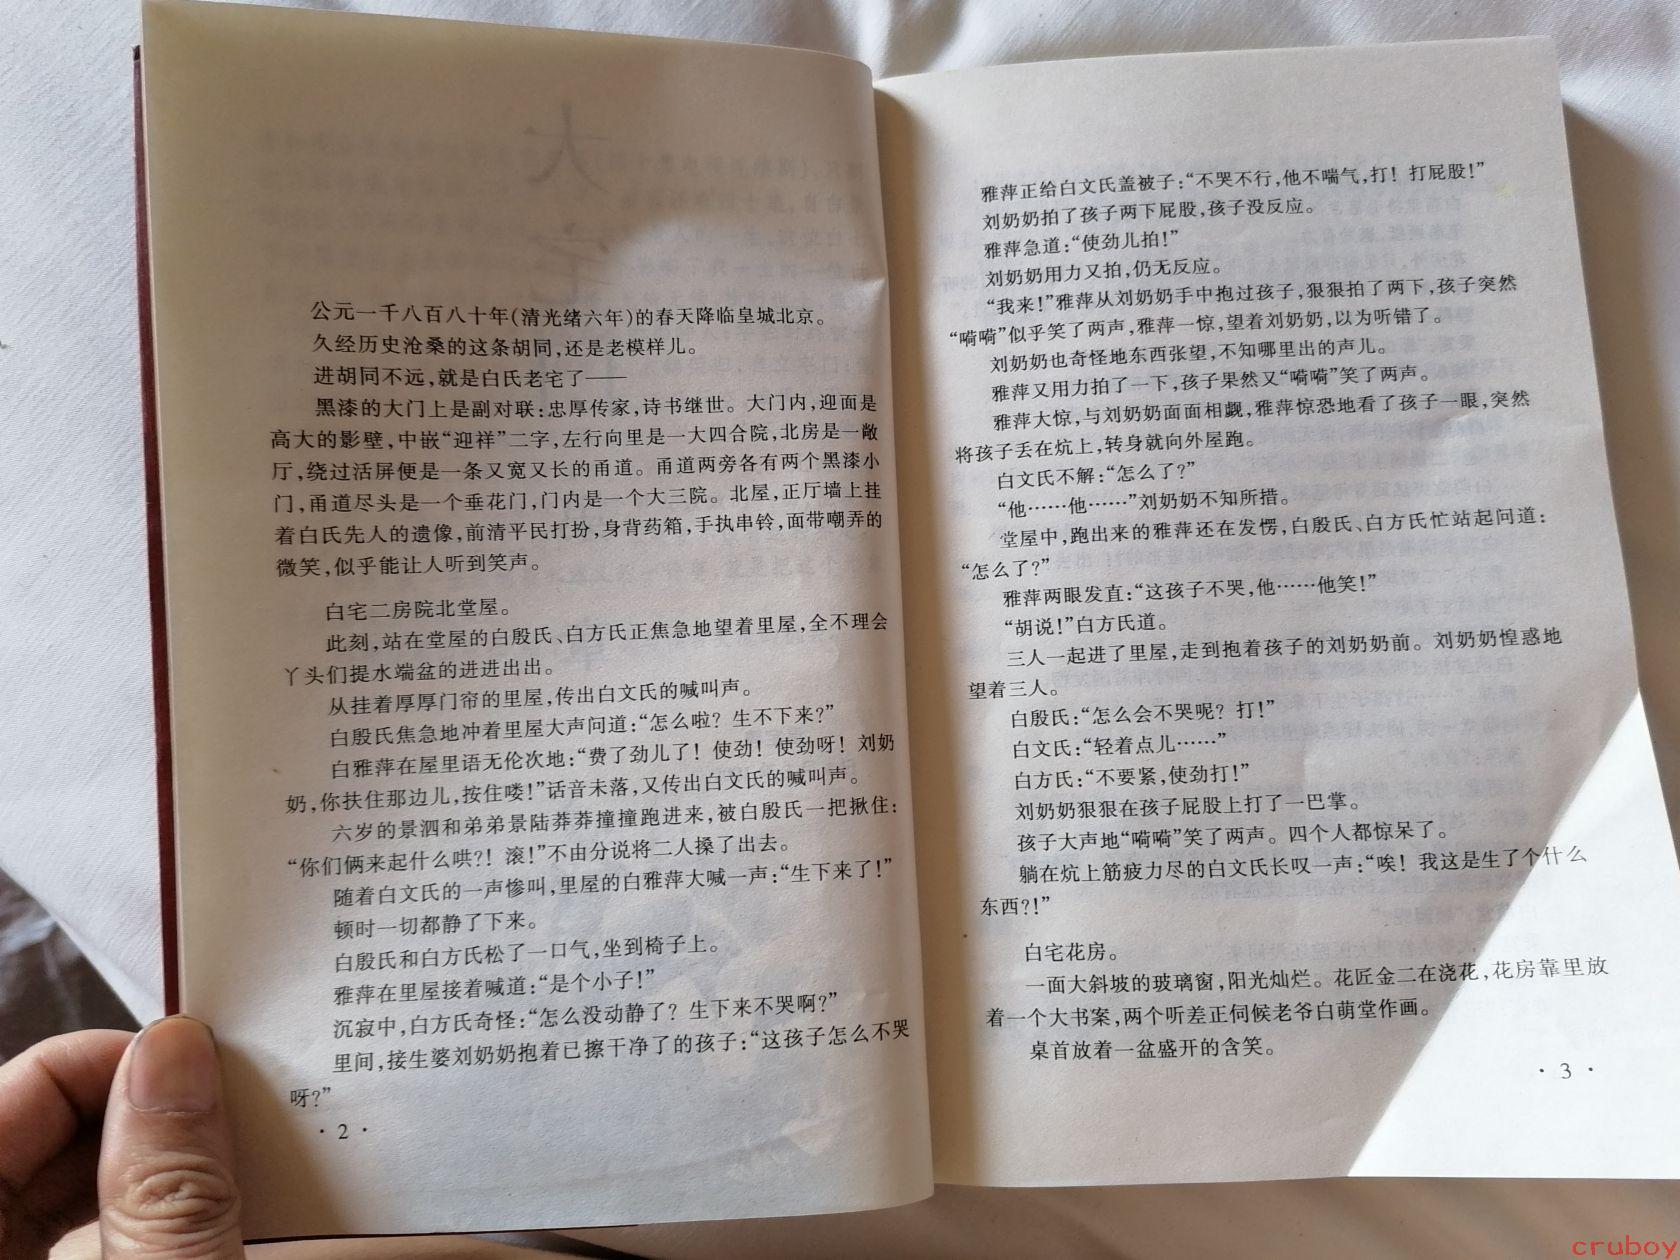 公元一千八百八十年(清光绪六年)的春天降临皇城北京。
久经历史沧桑的这条胡同,还是老模样儿。
进胡同不远,就是白氏老宅了——
黑漆的大门上是副对联:忠厚传家,诗书继世。大门内,迎面是
高大的影壁,中嵌“迎祥”二字,左行向里是一大四合院,北房是一敞
厅,绕过活屏便是一条又宽又长的甬道。甬道两旁各有两个黑漆小
门,甬道尽头是一个垂花门,门内是一个大三院。北屋,正厅墙上挂
着白氏先人的遗像,前清平民打扮,身背药箱,手执串铃,面带嘲弄的
微笑,似乎能让人听到笑声。
白宅二房院北堂屋。
此刻,站在堂屋的白殷氏、白方氏正焦急地望着里屋,全不理会
丫头们提水端盆的进进出出。
从挂着厚厚门帘的里屋,传出白文氏的喊叫声。
白殷氏焦急地冲着里屋大声问道:“怎么啦?生不下来?”
白雅萍在屋里语无伦次地:“费了劲儿了!使劲!使劲呀!刘奶
奶,你扶住那边儿,按住喽!”话音未落,又传出白文氏的喊叫声。
六岁的景泗和弟弟景陆莽莽撞撞跑进来,被白殷氏一把揪住:
“你们俩来起什么哄?!滚!”不由分说将二人搡了出去。
随着白文氏的一声惨叫,里屋的白雅萍大喊一声:“生下来了!”
顿时一切都静了下来。
白殷氏和白方氏松了一口气,坐到椅子上。
雅萍在里屋接着喊道:“是个小子!”
沉寂中,白方氏奇怪:“怎么没动静了?生下来不哭啊?”
里间,接生婆刘奶奶抱着已擦干净了的孩子:“这孩子怎么不哭
呀?”
· 2 ·
雅萍正给白文氏盖被子:“不哭不行,他不喘气,打!打屁股!”
刘奶奶拍了孩子两下屁股,孩子没反应。
雅萍急道:“使劲儿拍!”
刘奶奶用力又拍,仍无反应。
“我来!”雅萍从刘奶奶手中抱过孩子,狠狠拍了两下,孩子突然
“嗬嗬”似乎笑了两声,雅萍一惊,望着刘奶奶,以为听错了。
刘奶奶也奇怪地东西张望,不知哪里出的声儿。
雅萍又用力拍了一下,孩子果然又“嗬嗬”笑了两声。
雅萍大惊,与刘奶奶面面相觑,雅萍惊恐地看了孩子一眼,突然
将孩子丢在炕上,转身就向外屋跑。
白文氏不解:“怎么了?”
“他……他……”刘奶奶不知所措。
堂屋中,跑出来的雅萍还在发愣,白殷氏、白方氏忙站起问道:
“怎么了?”
雅萍两眼发直:“这孩子不哭,他……他笑!”
“胡说!”白方氏道。
三人一起进了里屋,走到抱着孩子的刘奶奶前。刘奶奶惶惑地
望着三人。
白殷氏:“怎么会不哭呢?打!”
白文氏:“轻着点儿……”
白方氏:“不要紧,使劲打!”
刘奶奶狠狠在孩子屁股上打了一巴掌。
孩子大声地“嗬嗬”笑了两声。四个人都惊呆了。
躺在炕上筋疲力尽的白文氏长叹一声:“唉!我这是生了个什么
东西?!”
白宅花房。
一面大斜坡的玻璃窗,阳光灿烂。花匠金二在浇花,花房靠里放
着一个大书案,两个听差正伺候老爷白萌堂作画。
桌首放着一盆盛开的含笑。
· 3 ·
cruboy